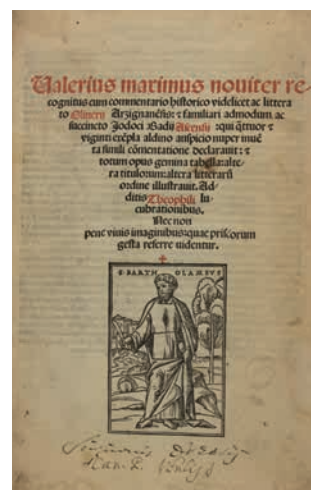 Valerius maximus noviter re
cognitus cum commentario historico videlicet ac littera
to Oliverij Arzignanēsis: ⁊ familiari admodum ac
succincto Jodoci Badij Ascensij :qui q̄ttuor ⁊
viginti exēpla aldino auspicio nuper invē
ta simili cōmentatione declaravit: ⁊
totum opus gemina tabella:alte-
ra titulorum:altera litterarū
ordine illustravit. Ad-
ditis Theophili lu-
cubrationibus.
Nec non
pene vivis imaginibus:quae priscorum
gesta referre uidentur.
S·BARTH OLAMEVS